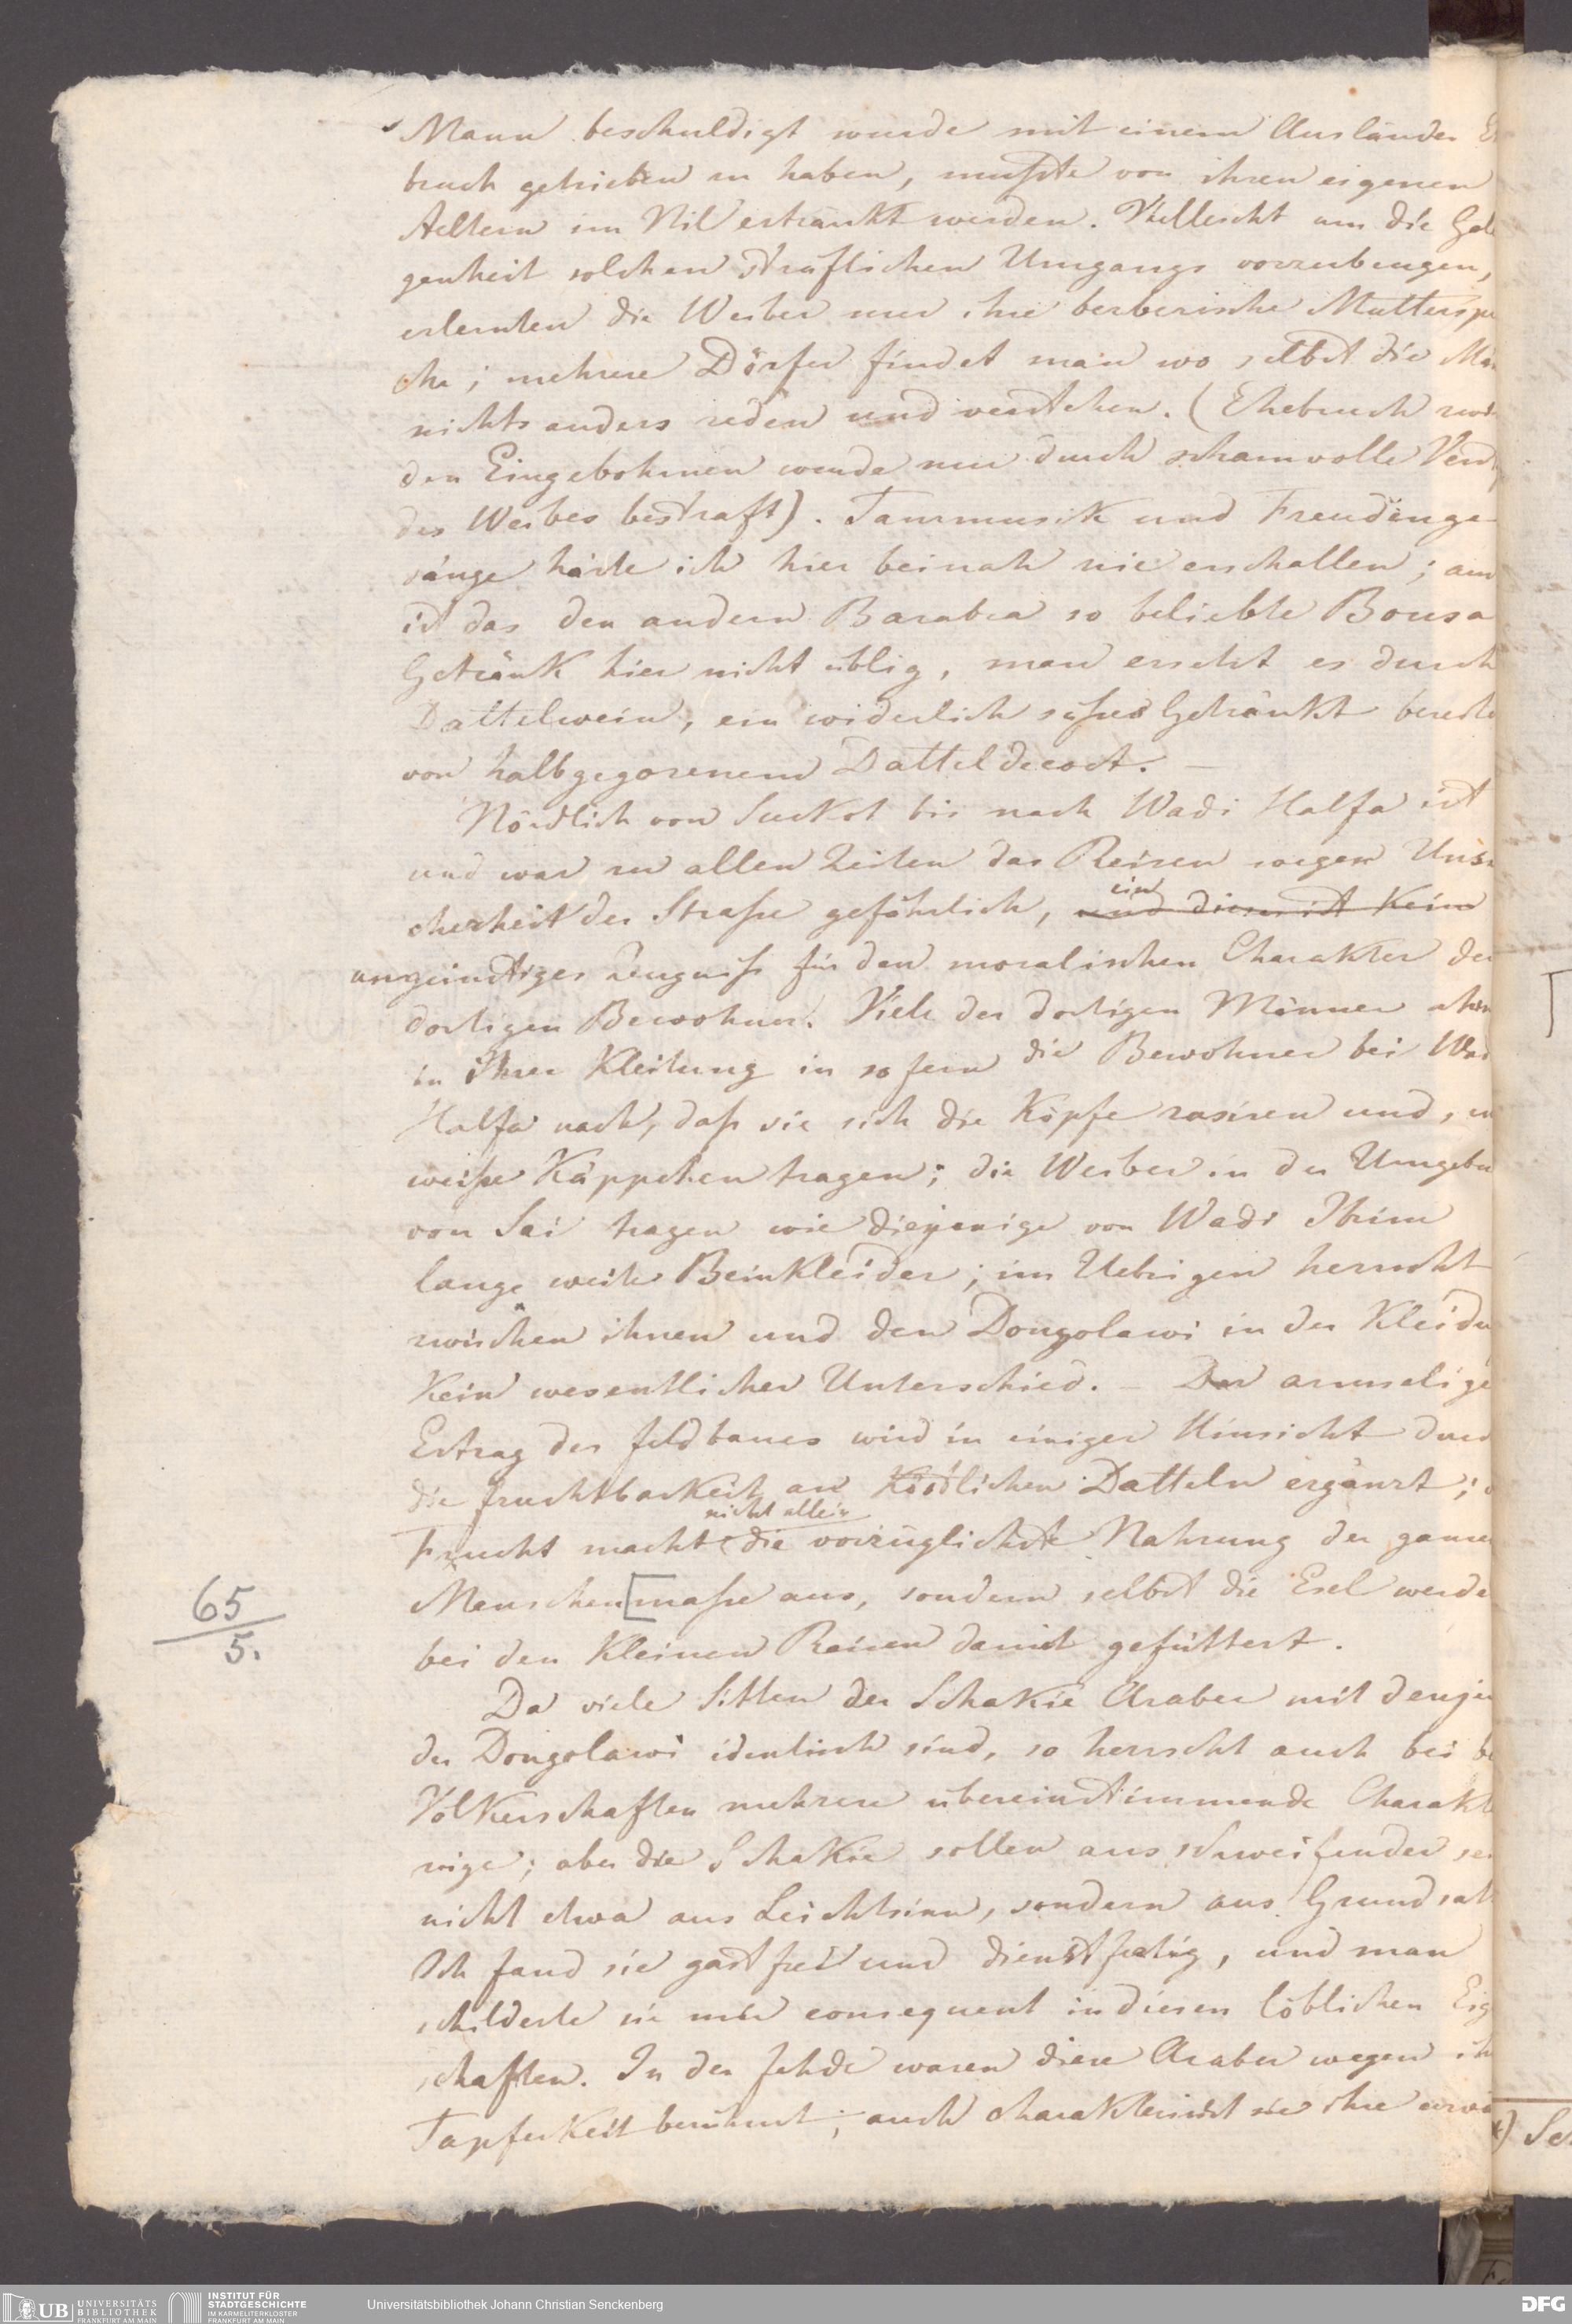 Mann beschuldigt wurde mit einem Ausländer E
bruch getrieben zu haben, mußte von ihren eigenen
Aeltern im Nil ertränkt werden. Vielleicht um die Gele
genheit solchen sträflichen Umgangs vorzubeugen,
erlernten die Weiber nur ihre berberische Mutterspr
che; mehrere Dörfer findet man wo selbst die Män
nichts anders reden und verstehen. (Ehebruch zwi
den Eingebohrnen wurde nur durch schamvolle Vers
des Weibes bestraft). Tanzmusik und Freudenge-
sänge hörte ich hier beinah nie erschallen; auch
ist das den andern Barabra so beliebte Bousa
Getränk hier nicht üblig, man ersetzt es durch
Dattelwein, ein widerlich süßes Getränkt bereite
von halbgegorenem Datteldecoct. —
Nördlich von Suckot bis nach Wadi Halfa ist
und war zu allen Zeiten das Reisen wegen Unsi
cherheit der Straße gefährlich, und dieses ist kein
ein
ungünstiges Zeugniß für den moralischen Charakter der
dortigen Bewohner. Viele der dortigen Männer ahm
in Ihrer Kleitung in so fern die Bewohner bei Wad
Halfa nach, daß sie sich die Köpfe rasiren und, u
weiße Käppchen tragen; die Weiber in der Umgebu
von Sai tragen wie diejenige von Wadi Ibrim
lange weite Beinkleider; im Uebrigen herrscht
zwischen ihnen und den Dongolawi in der Kleidu
kein wesentlicher Unterschied. — Der armselige
Ertrag des Feldbaues wird in einiger Hinsicht durch
die Fruchtbarkeit an köstlichen Datteln ergänzt; d
nicht allein
Frucht macht die vorzüglichste Nahrung der ganzen
Menschen[maße aus, sondern selbst die Esel werde
65
5.
bei den kleinen Reisen damit gefüttert.
Da viele Sitten der Schakie Araber mit denjen
der Dongolawi identisch sind, so herrscht auch bei be
Völkerschaften mehrere übereinstimmende Charakte
züge; aber die Schakie sollen ausschweifender sei
nicht etwa aus Leichtsinn, sondern aus Grundsatz
Ich fand sie gastfrei und dienstfertig, und man
schilderte sie mir consequent in diesen löblichen Eig
schaften. In der Fehde waren diese Araber wegen ih
Tapferkeit berühmt; auch charakterisirt sie ihre
*) Se
UB UNIVERSITÄTS
BIBLIOTHEK
FRANKFURT AM MAIN
INSTITUT FÜR
STADTGESCHICHTE
IM KARMELITERKLOSTER
FRANKFURT AM MAIN
Universitätsbibliothek Johann Christian Senckenberg
DFG